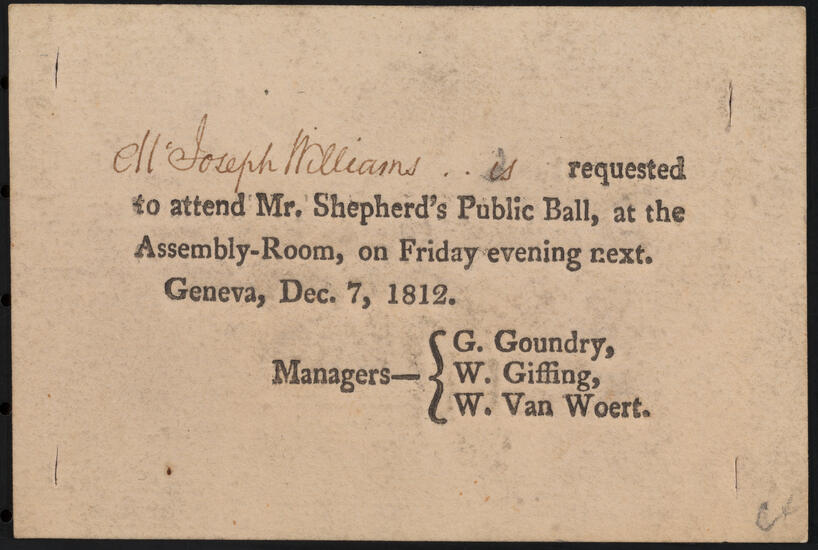 Mr Joseph Williams .. is requested
to attend Mr. Shepherd's Public Ball, at the
Assembly-Room, on Friday evening next.
Geneva, Dec. 7, 1812.
Managers— { G. Goundry,
W. Giffing,
W. Van Woert.